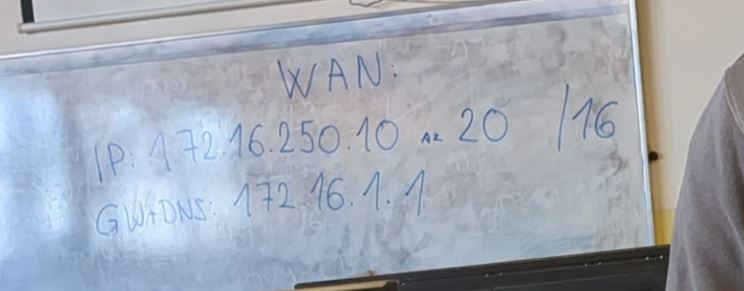 WAN:
IP: 172.16.250.10 AŽ 20 /16
GW+DNS: 172.16.1.1